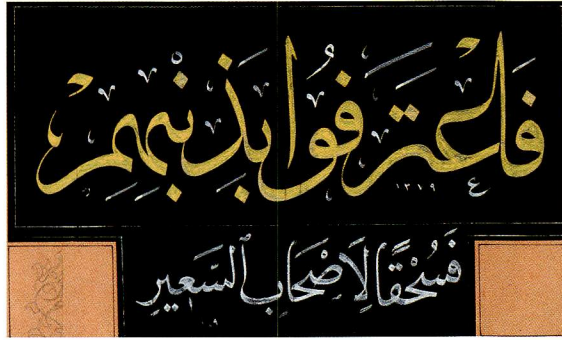 فَاعْتَرَفُوا بِذَنْبِهِمْ
١٣١٩
فَسُحْقًا لِأَصْحَابِ ٱلسَّعِيرِ